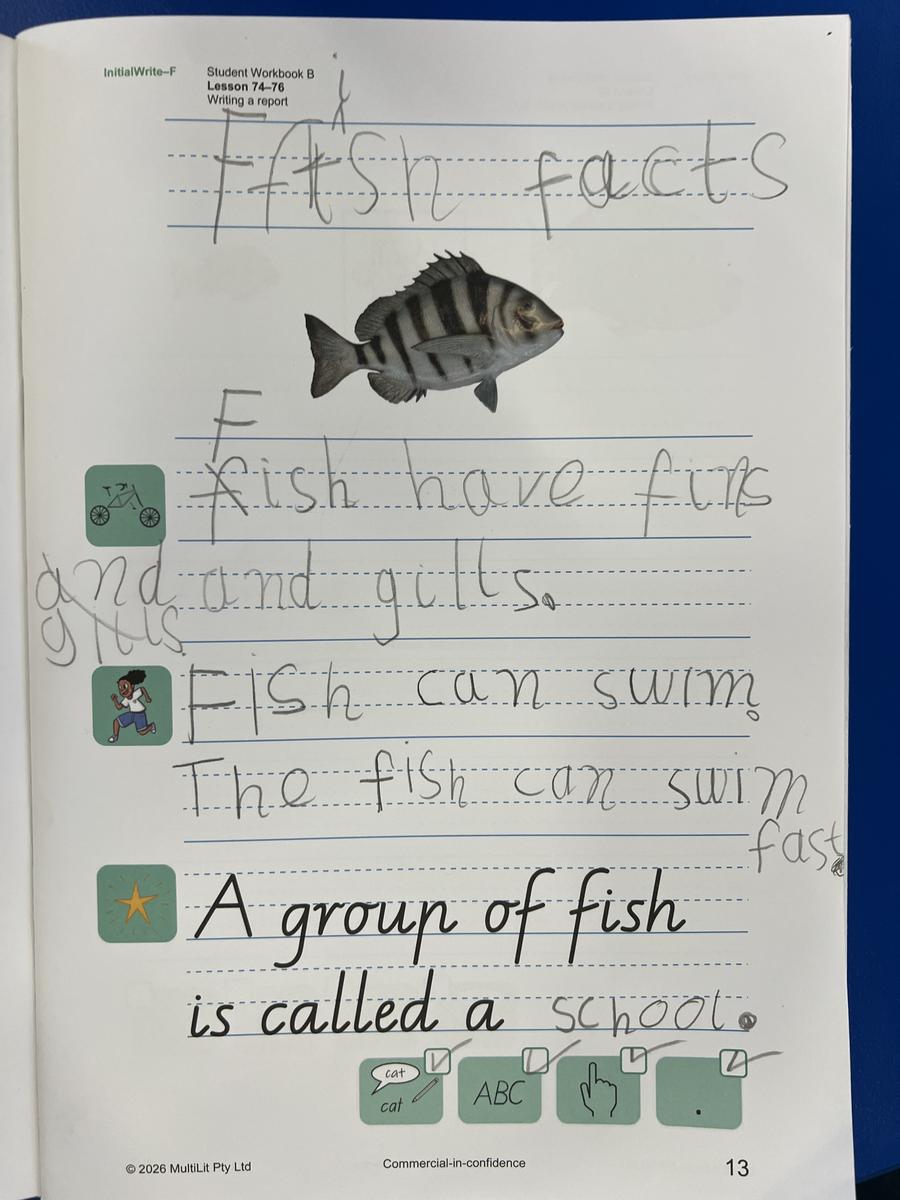 InitialWrite–F
Student Workbook B
Lesson 74–76
Writing a report
Fish facts
Fish have fins
and and gills.
gills
Fish can swim.
The fish can swim
fast.
A group of fish
is called a school.
cat
cat
ABC
.
© 2026 MultiLit Pty Ltd
Commercial-in-confidence
13